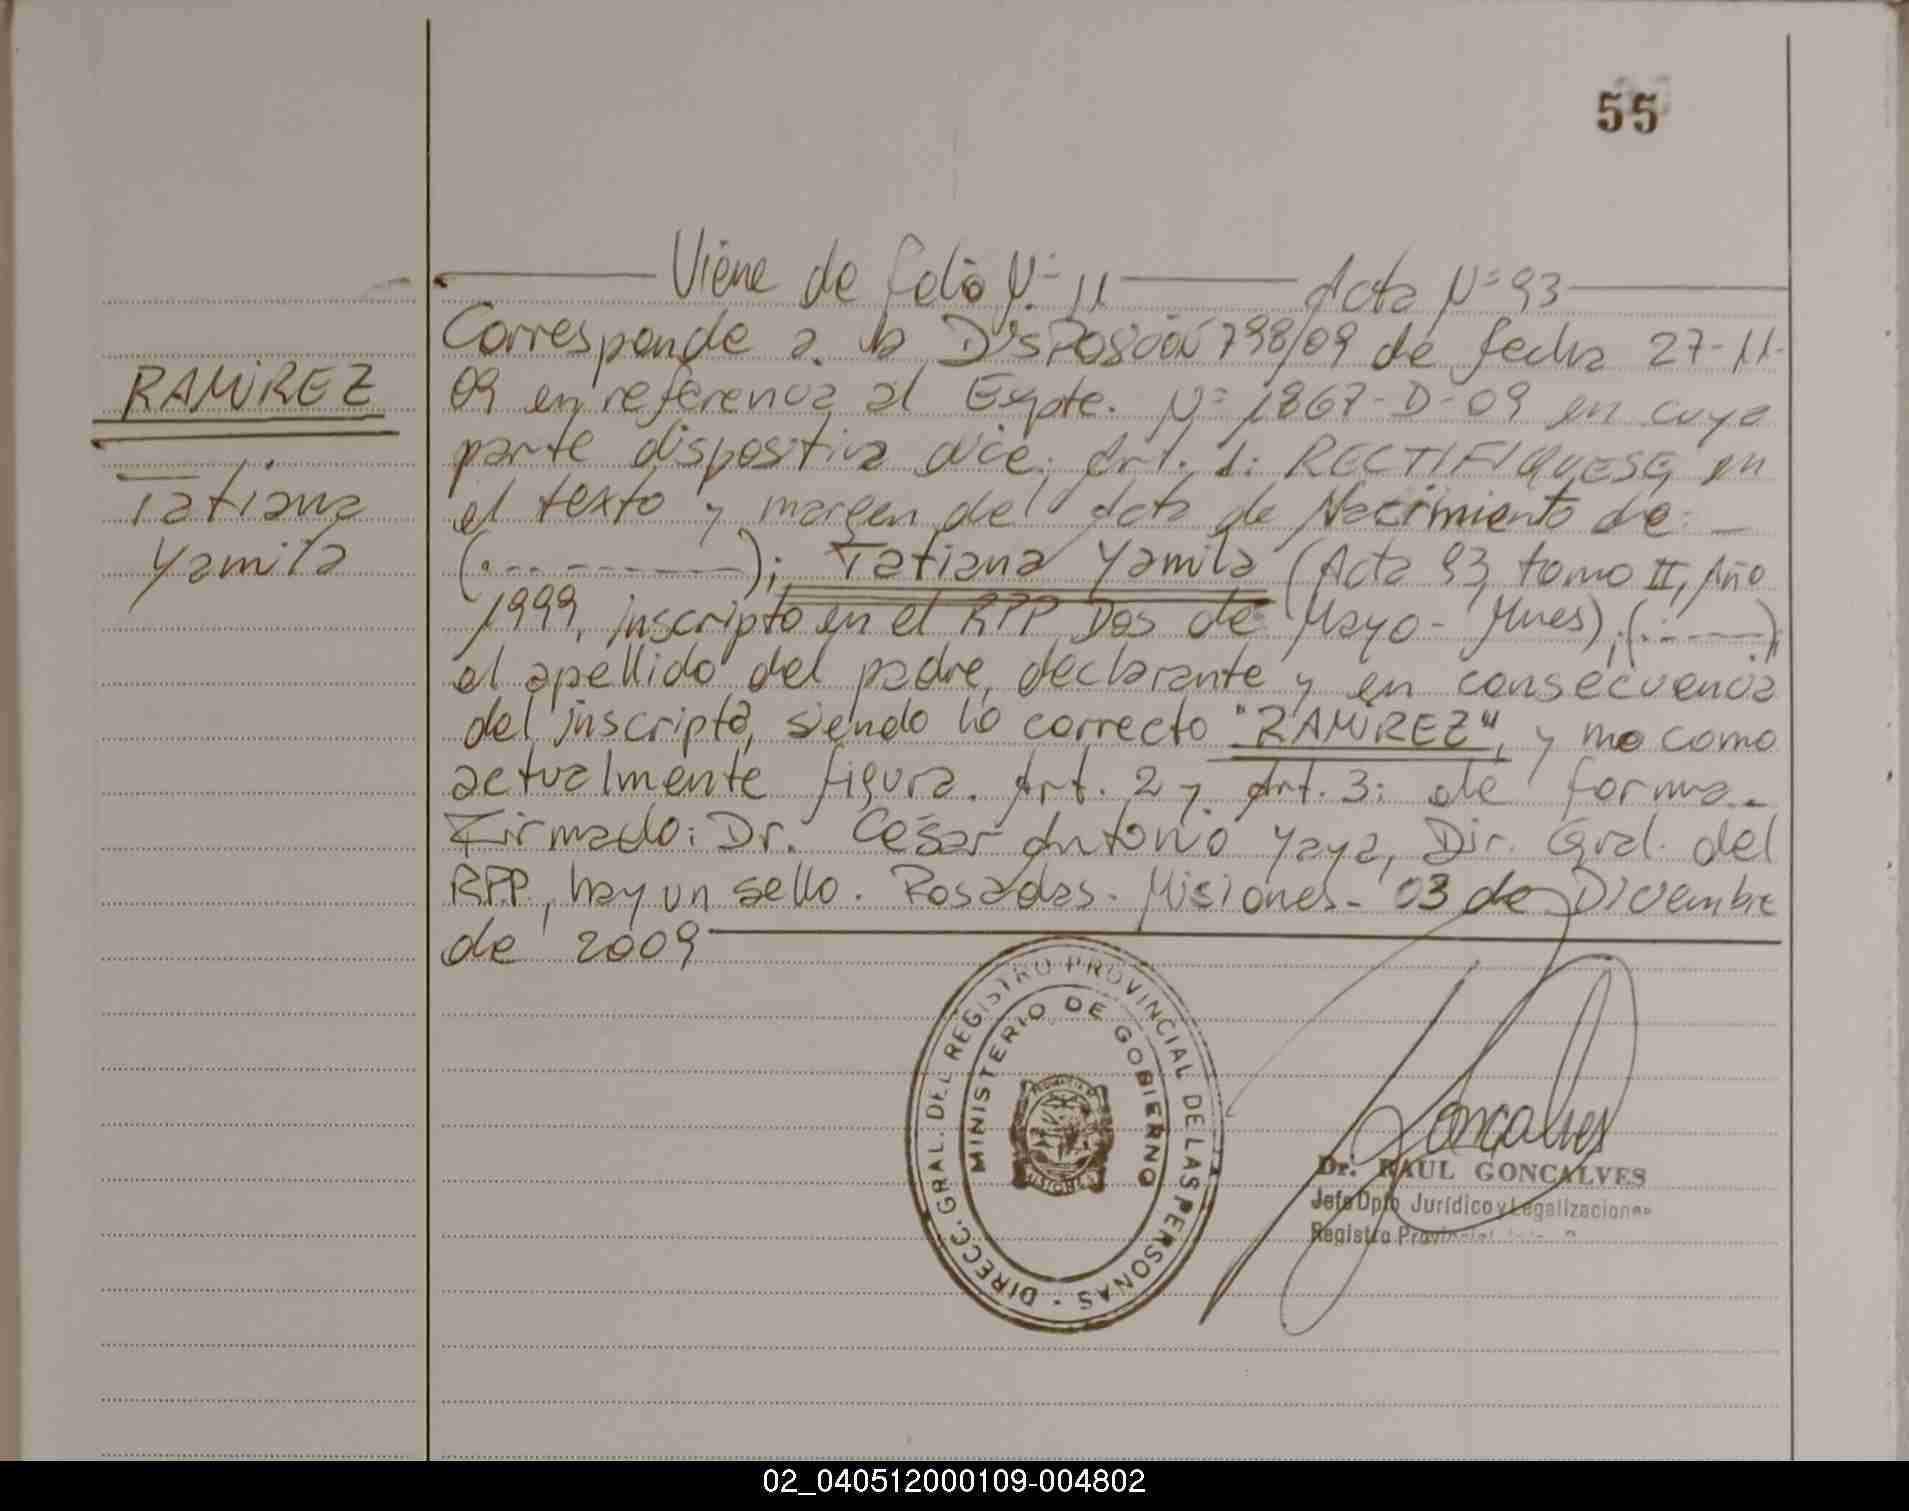 55
Viene de folio Nº 11 Acta Nº 93
Corresponde a la Disposición 798/09 de fecha 27-11-
RAMIREZ
09 en referencia al Expte. Nº 1867-D-09 en cuya
parte dispositiva dice: Art. 1: RECTIFIQUESE, en
Tatiana
el texto y margen del Acta de Nacimiento de:
Yamila
(. - - - - - -); Tatiana Yamila (Acta 93, tomo II, Año
1999, inscripto en el RPP Dos de Mayo - Mnes), (. - - -),
el apellido del padre, declarante y en consecuencia
del inscripto, siendo lo correcto "RAMIREZ", y no como
actualmente figura. Art. 2 y Art. 3: de forma.
Firmado: Dr. César Antonio Yaya, Dir. Gral. del
RPP, hay un sello. Posadas - Misiones - 03 de Diciembre
de 2009
DIRECC. GRAL. DEL REGISTRO PROVINCIAL DE LAS PERSONAS -
MINISTERIO DE GOBIERNO
MISIONES
Goncalves
Dr. RAUL GONCALVES
Jefe Dpto Jurídico y Legalizaciones
Registro Provincial
02_040512000109-004802